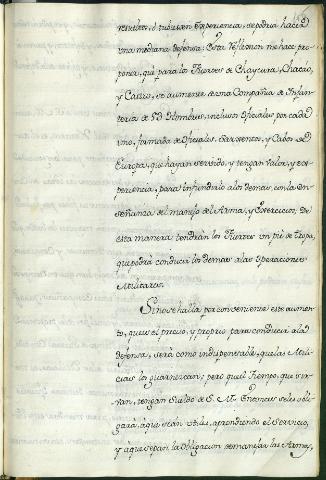 resueltos, ó tubiesen Experiencia, se podria hacer
una mediana defensa: Esta reflexion me hace pro-
poner, qe para los Fuertes de Chaycura, Chacao,
y Castro, se aumente de una Compañia de Infan-
teria de 50 Hombres, inclusos Oficiales, por cada
uno, formada de Oficiales, Sargentos, y Cabos de
Europa, que hayan servido, y tengan valor, y ex-
periencia, para infundirlo a los demas, con la En-
señanza del manejo del Arma, y Exercicios; De
esta manera tendràn los Fuertes un pie de Tropa,
qe podrá conducir los demas a las Operaciones
Militares.
Si no se halla por conveniente este aumen-
to, que es el preciso, y propio para conducir a la
defensa, será como indispensable, que las Mili-
cias los guarnezcan; pero qe el Tiempo, que sir-
van, tengan Sueldo de S. M. Entonces se les obli-
gará, a que sean utiles, aprendiendo el Servicio,
y a que sepan la Obligacion de manejar las Armas,